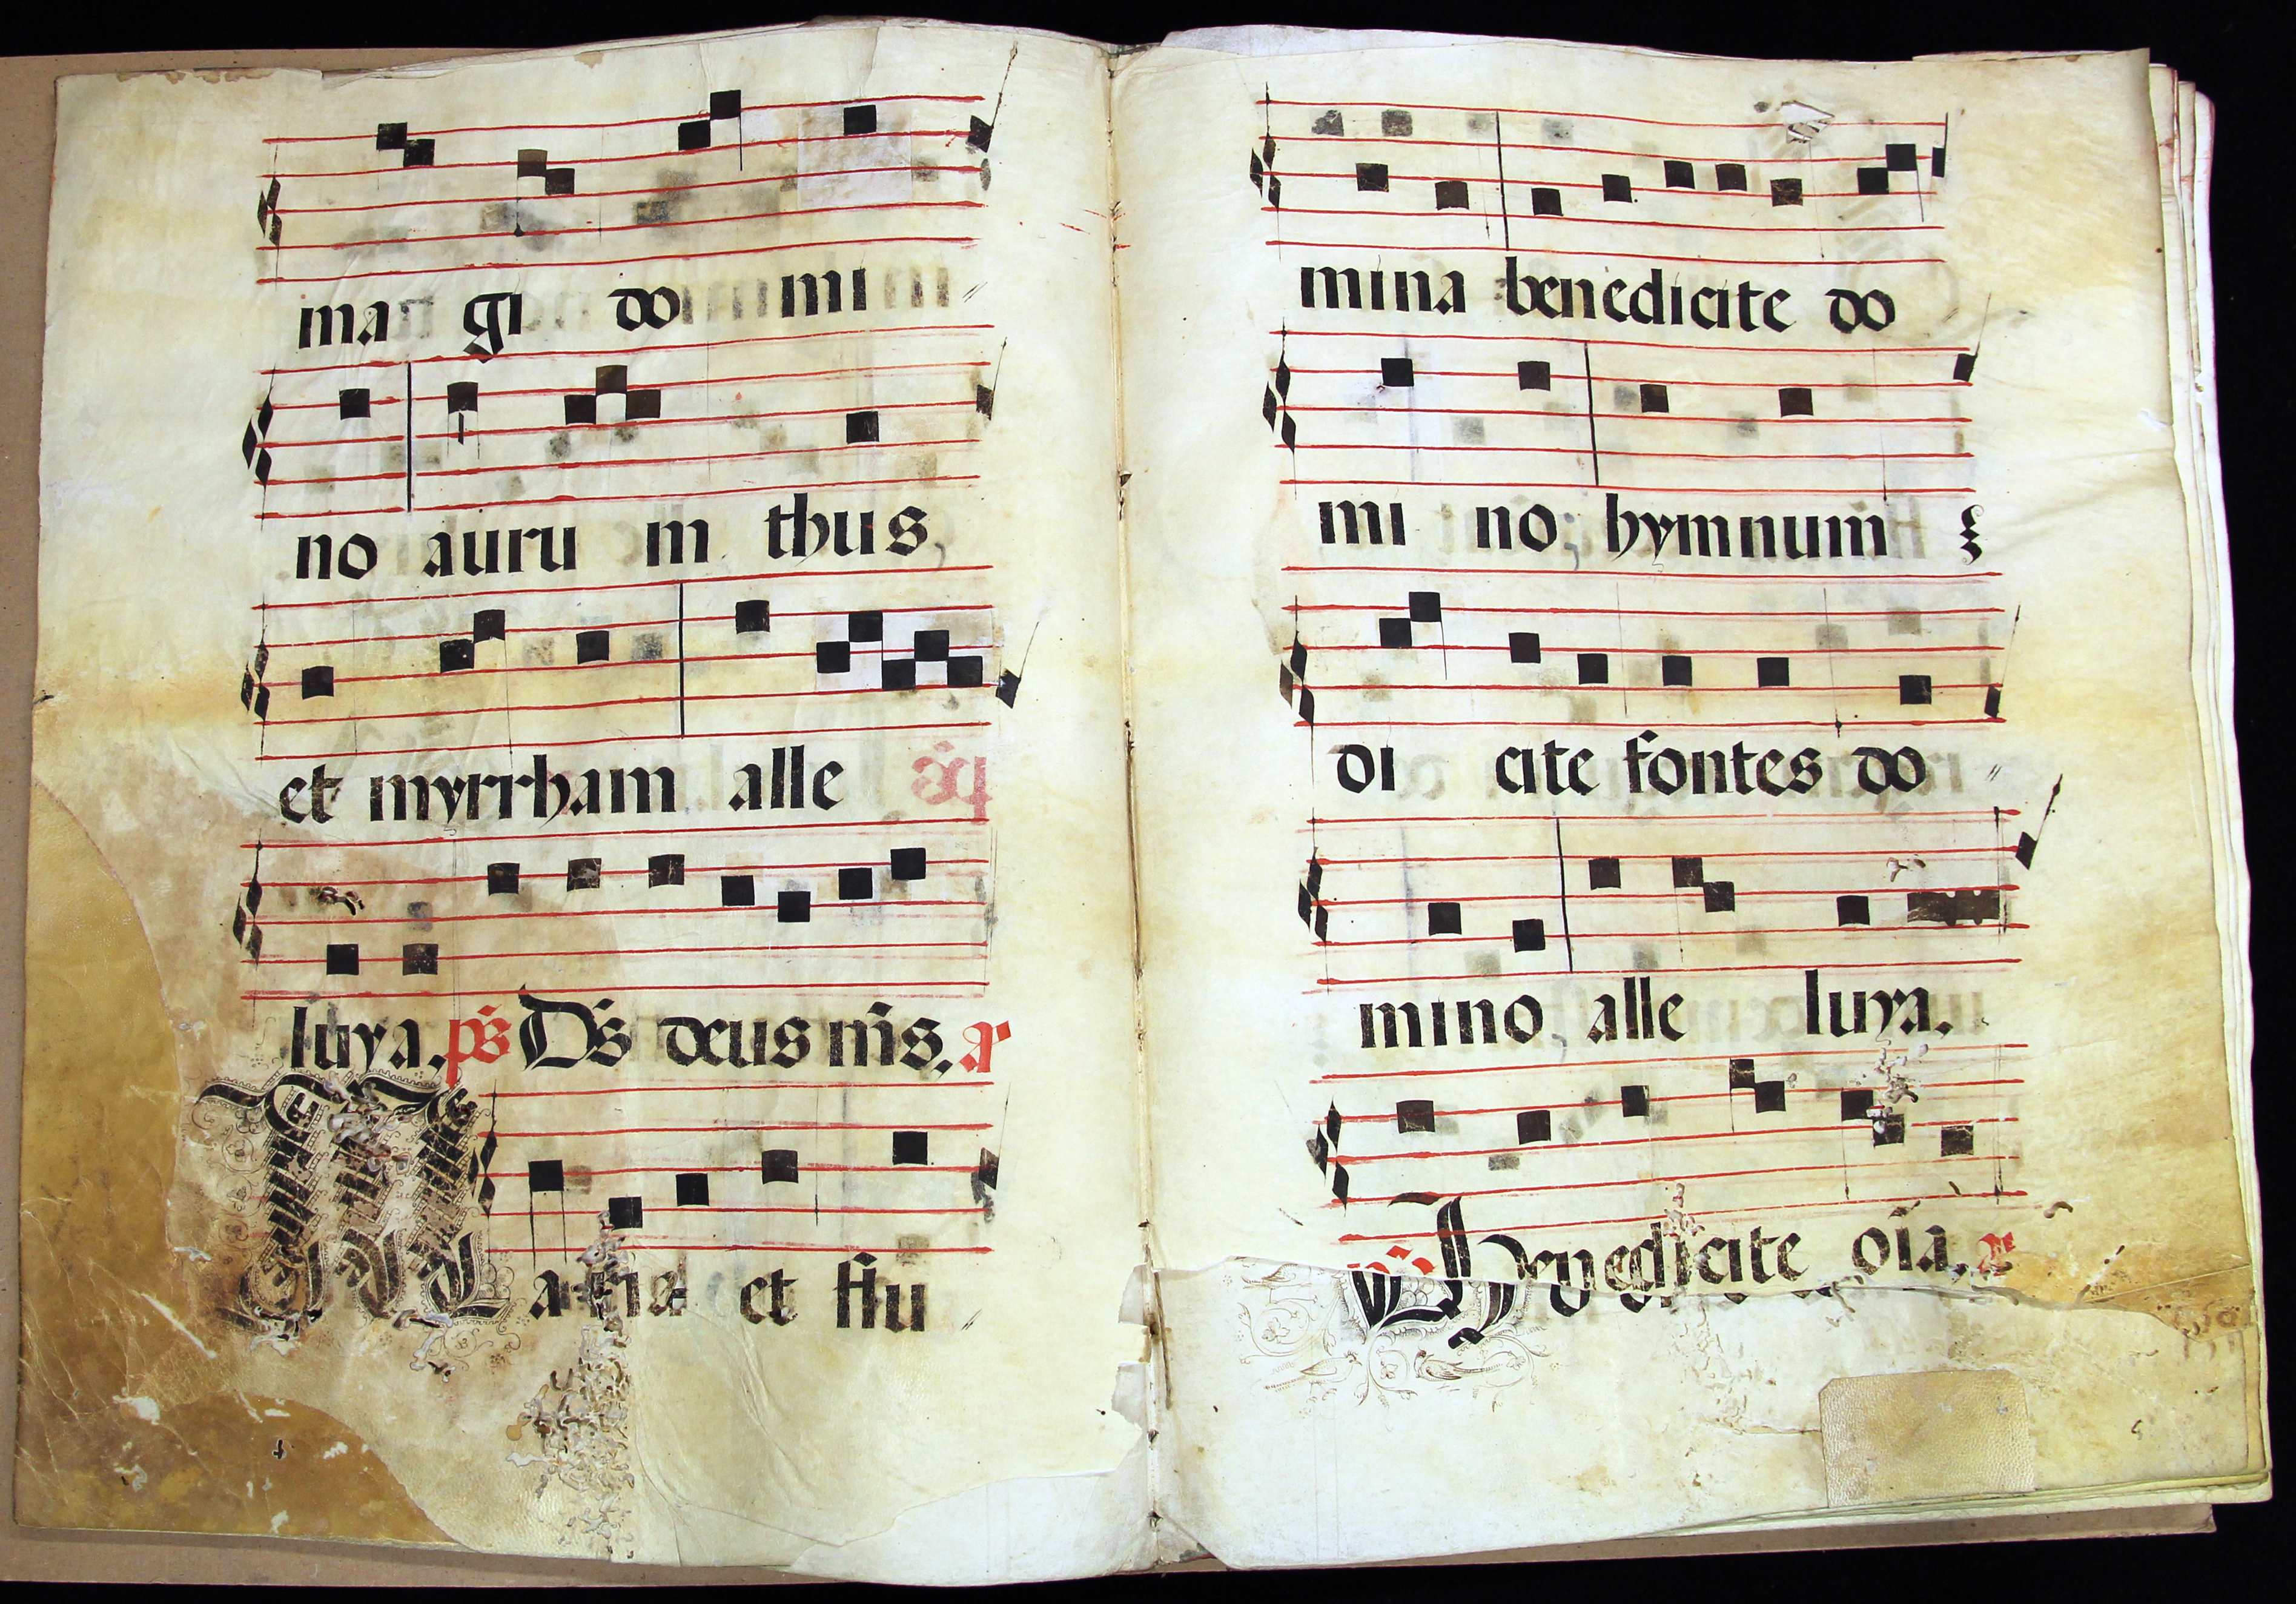 ma gi do mi
no auru m thus,
et myrrham alle
luya. ps Ds deus ms. a
M a ria et flu
mina benedicite do
mi no, hymnum
di cite fontes do
mino, alle luya.
ps Benedicite oīa. a